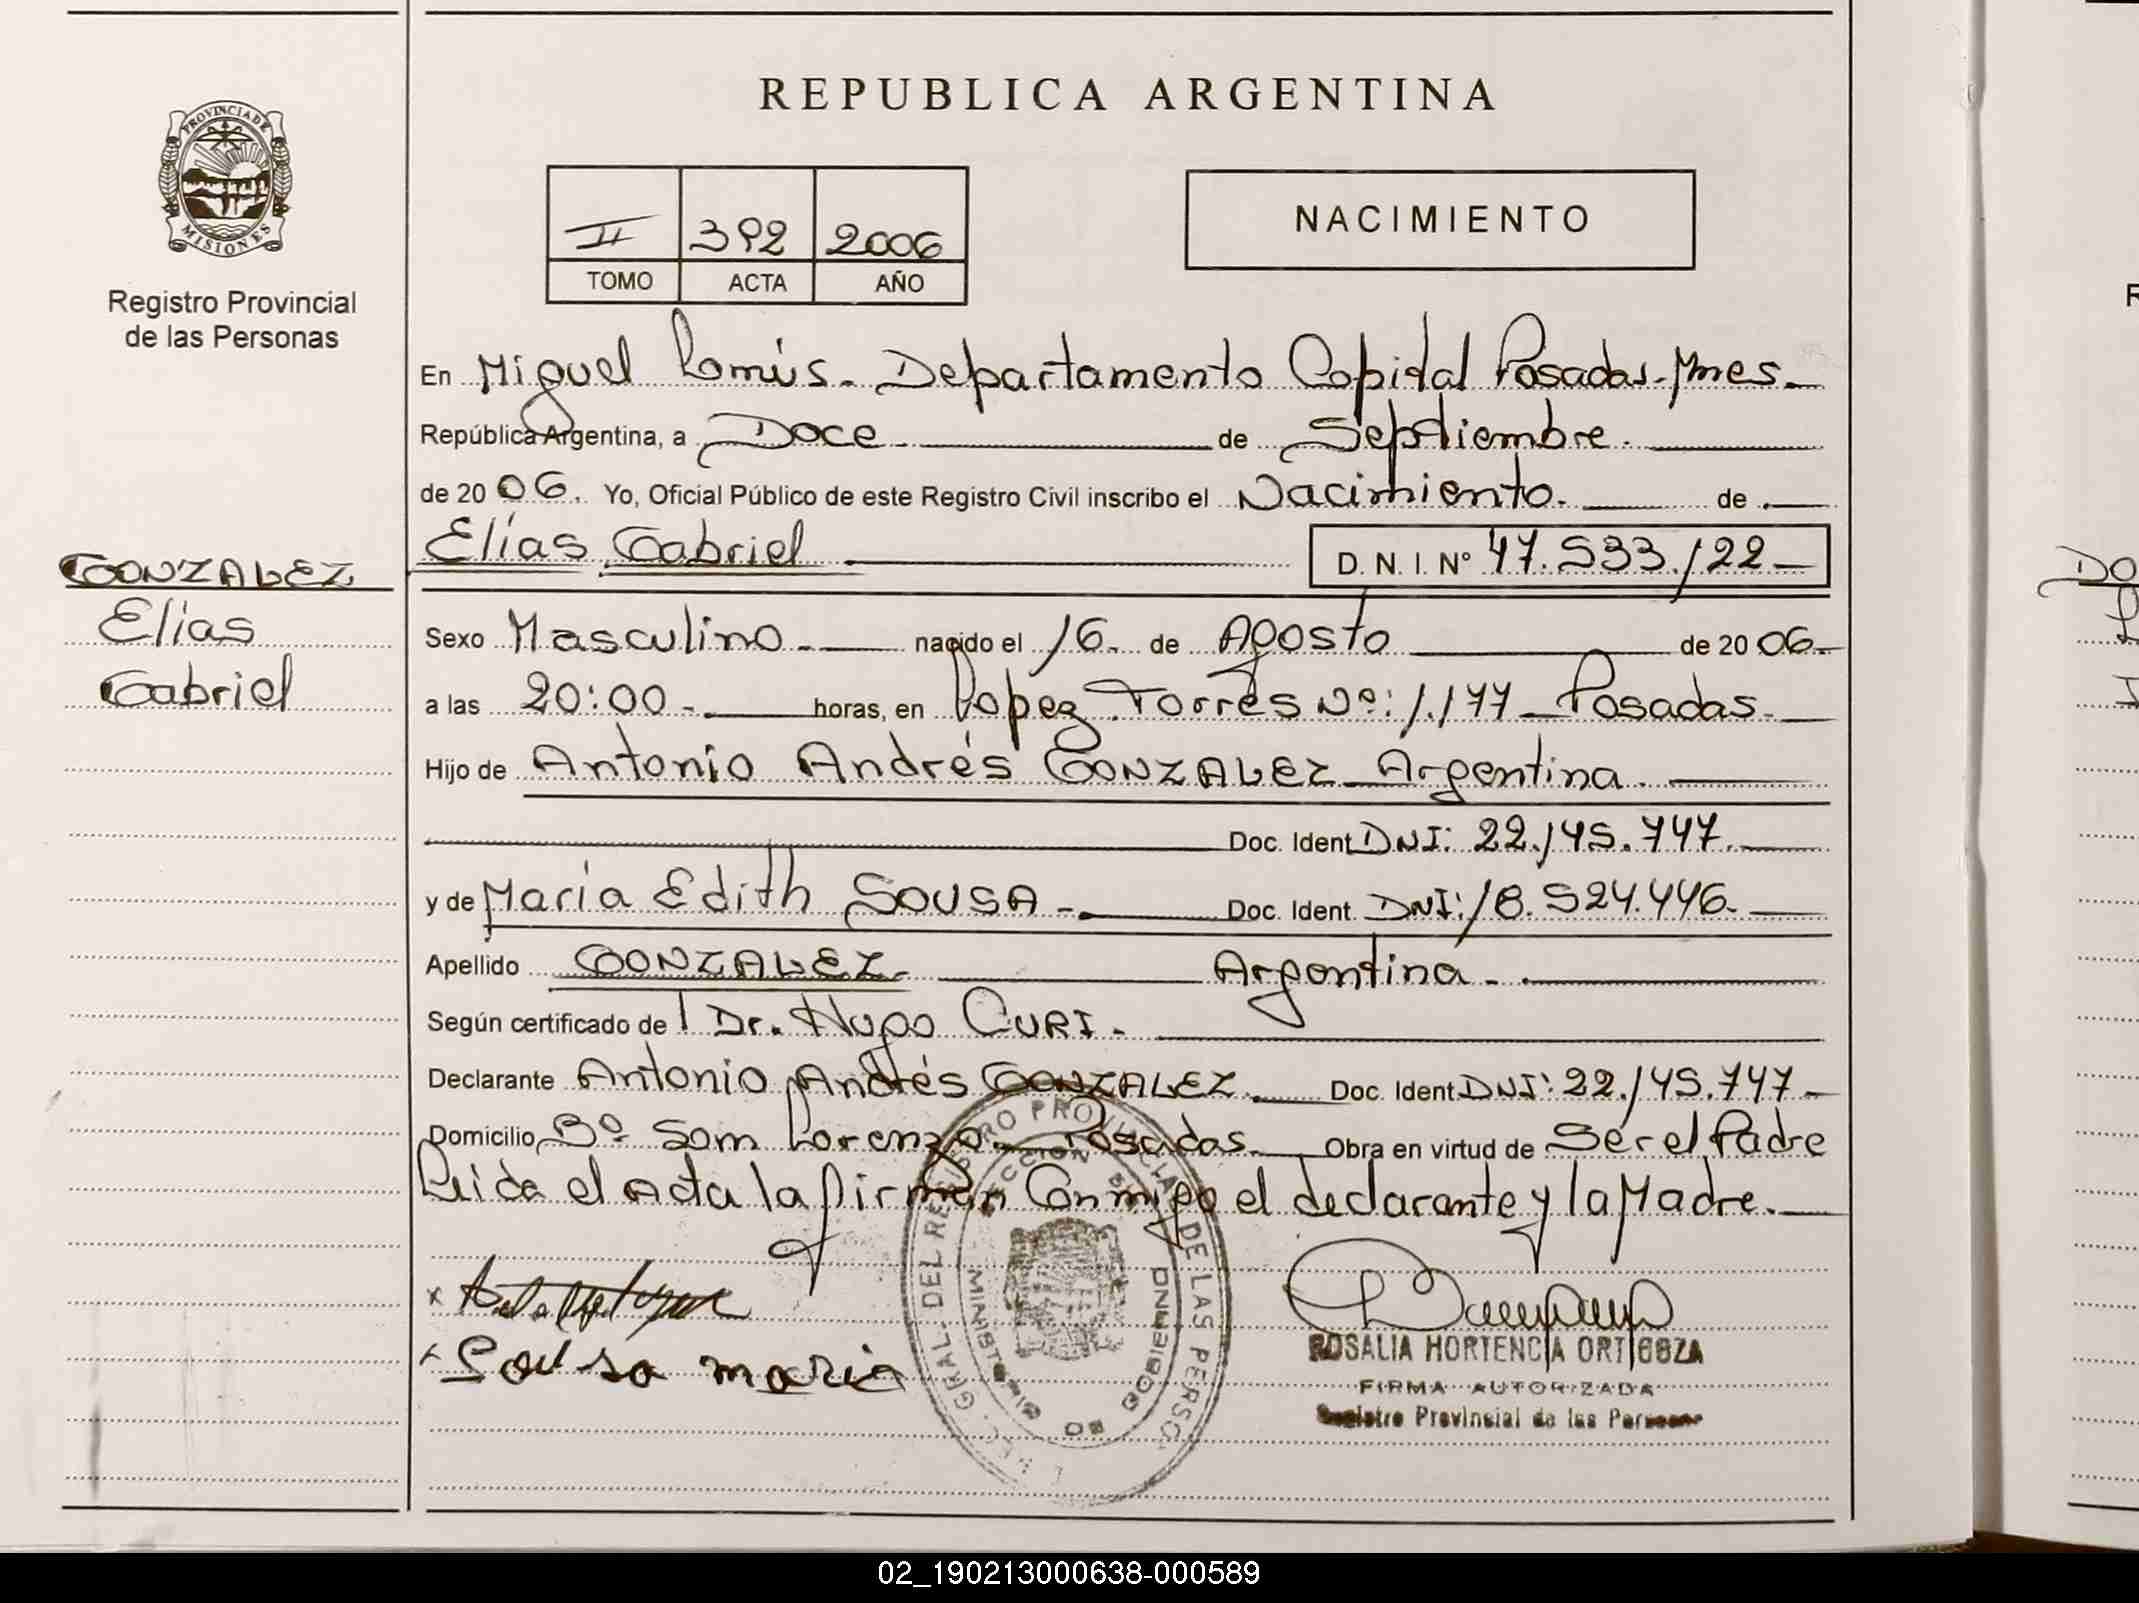 REPUBLICA ARGENTINA
PROVINCIA DE MISIONES
Registro Provincial
de las Personas
II 392 2006
TOMO ACTA AÑO
NACIMIENTO
En Miguel Lanús. Departamento Capital Posadas. Mnes.
República Argentina, a Doce de Septiembre.
de 20 06. Yo, Oficial Público de este Registro Civil inscribo el Nacimiento. de
Elías Gabriel D. N. I. Nº 47.533.122
GONZALEZ
Elías
Gabriel
Sexo Masculino nacido el 16. de Agosto de 20 06.
a las 20:00 horas, en Lopez Torres Nº: 1.177 Posadas.
Hijo de Antonio Andrés GONZALEZ Argentina.
Doc. Ident. DNI: 22.145.747.
y de María Edith SOUSA Doc. Ident. DNI: 18.524.446.
Apellido GONZALEZ. Argentina.
Según certificado de Dr. Hugo CURI.
Declarante Antonio Andrés GONZALEZ. Doc. Ident. DNI: 22.145.747
Domicilio Bº San Lorenzo. Posadas. Obra en virtud de Ser el Padre
Leida el Acta la firman Conmigo el declarante y la Madre.
Sousa maria
DIREC. GRAL. DEL REGISTRO PROVINCIAL DE LAS PERSO.
MINISTERIO DE GOBIERNO
ROSALIA HORTENCIA ORTIGOZA
FIRMA AUTORIZADA
Registro Provincial de las Personas
02_190213000638-000589